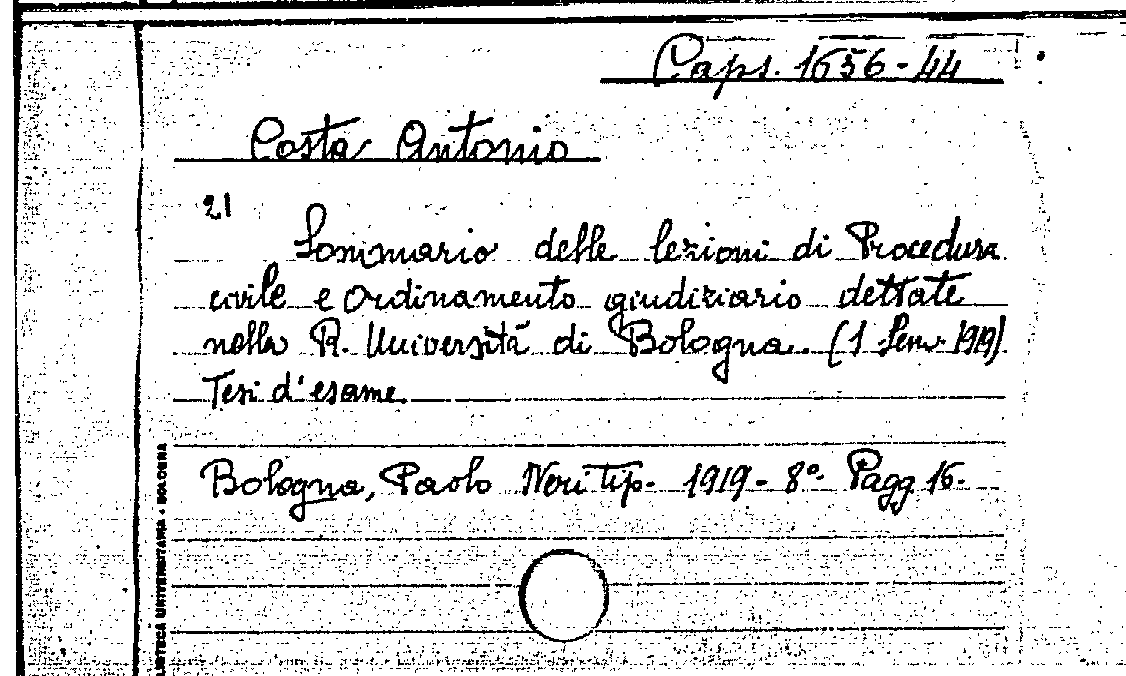 Caps. 1656-44
Costa Antonio
21
Sommario delle lezioni di Procedura
civile e Ordinamento giudiziario dettate
nella R. Università di Bologna. (1 Sem. 1919)
Tesi d'esame.
Bologna, Paolo Neri tip. 1919 - 8°. Pagg 16.
BIBLIOTECA UNIVERSITARIA - BOLOGNA